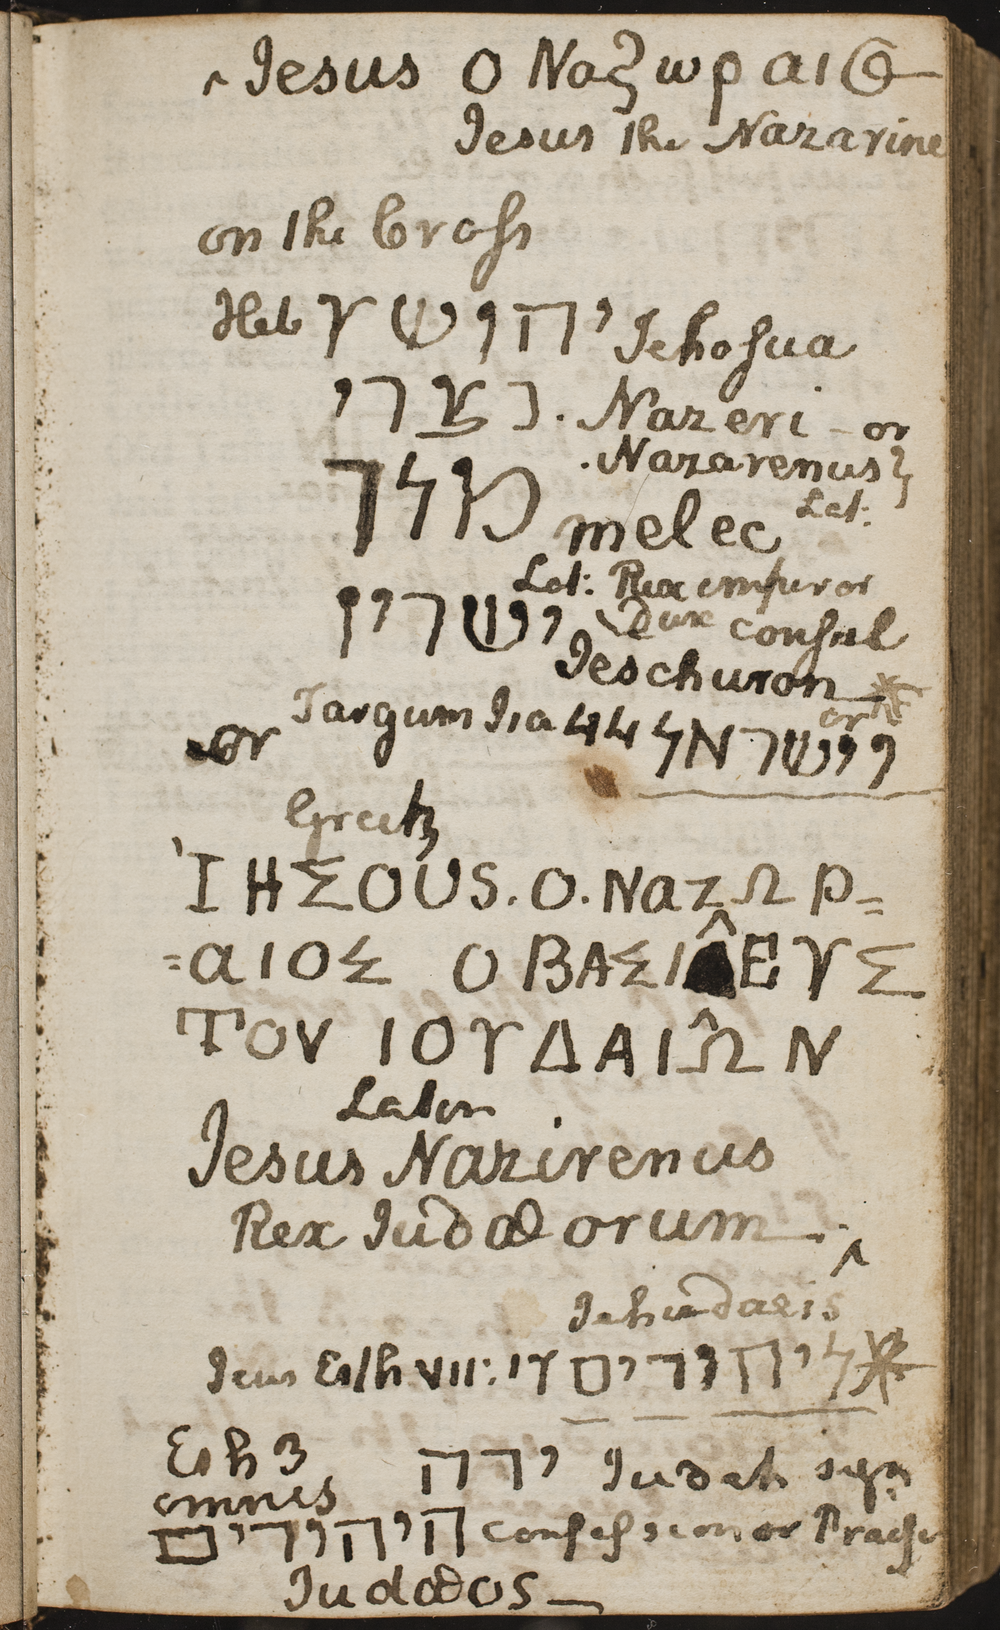 ‸ Jesus Ο Ναζωραι@
Jesus the Nazarine
on the Croſs
Heb יהושע Jehoſua
נצרי . Nazeri - or
. Nazarenus
מלך melec Lat:
Lat: Rex emperor
Dux conſul
ישרון Jeschuron *
or
or Targum Isa 44 וישראל
Greek
ἸΗΣΟUS . Ο . ΝαzΩΡ=
=αΙΟΣ Ο ΒΑΣΙΛΕΥΣ
ΤΟV ΙΟΥΔΑΙΩ̂Ν
Laton
Jesus Nazirenus
Rex Judæorum . ‸
Jehudaeis
Jews Esth VII: ליהודים *
Esh 3 ידה Judah sign
omnes
היהודים confeſsion or Praiſe
Judæos